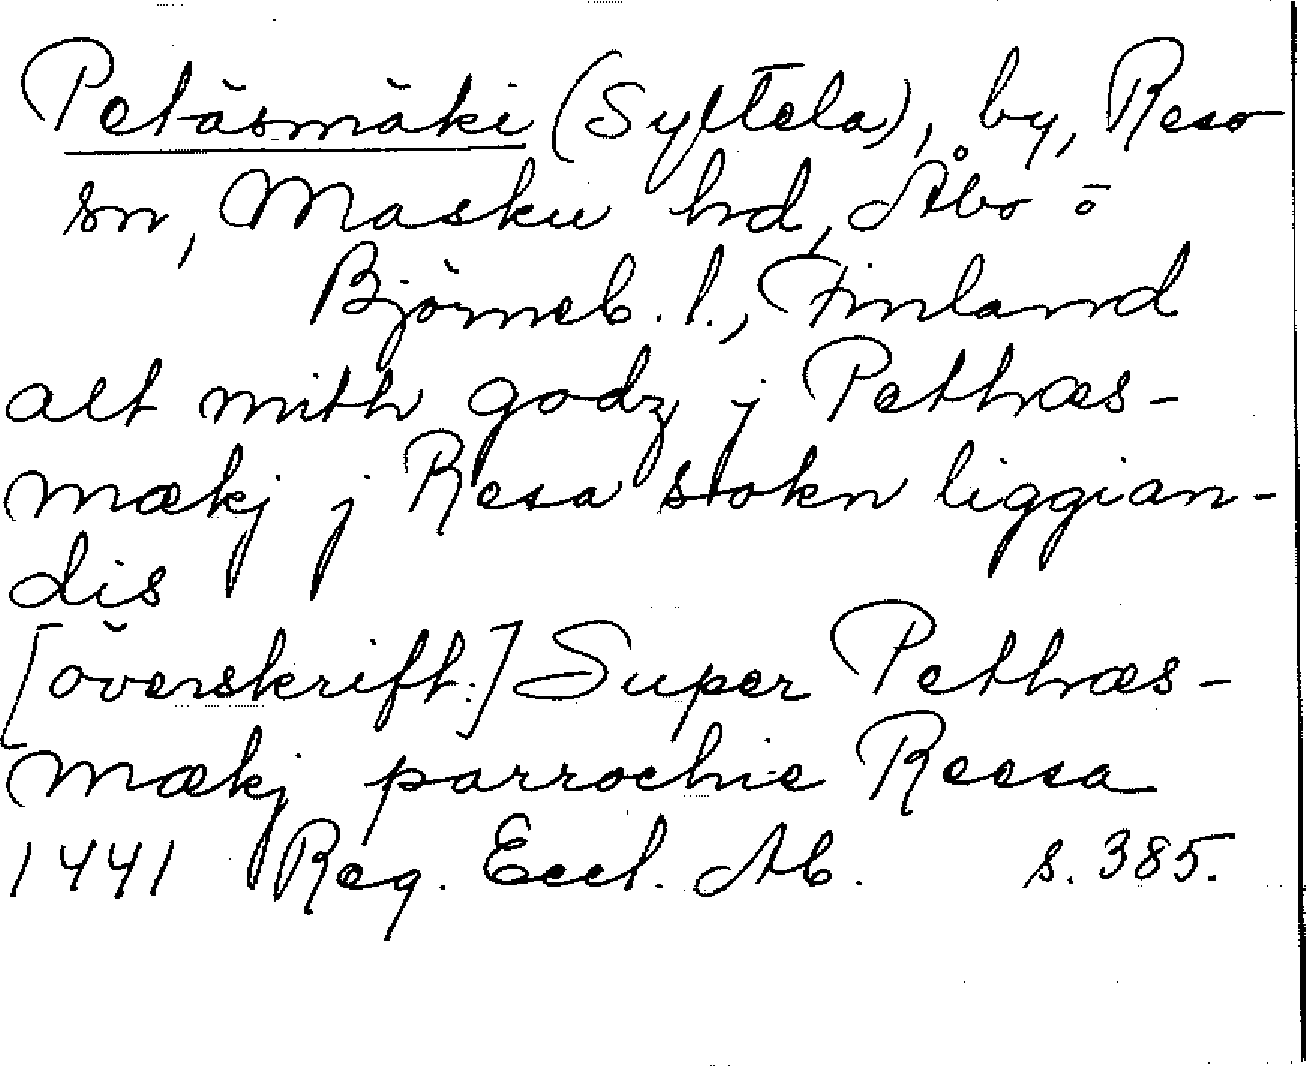 Petäsmäki (Syltela), by, Reso
sn, Masku hd, Åbo o
Björneb. l., Finland
alt mith godz j Pethæs-
mækj j Resa sokn liggian-
dis
[överskift:] Super Pethæs-
mækj parrochie Reesa
1441 Reg. Eccl. Ab. s. 385.